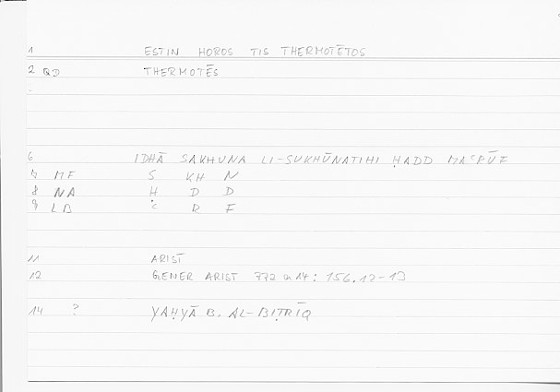 1 ESTIN HOROS TIS THERMOTĒTOS
2 QD THERMOTĒS
6 IDHĀ SAKHUNA LI-SUKHŪNATIHI ḤADD MAʿRŪF
7 MF S KH N
8 NA Ḥ D D
9 LB ʿ R F
11 ARIST
12 GENER ARIST 772 a 17 : 156.12-13
14 ? YAḤYĀ B. AL-BIṬRĪQ